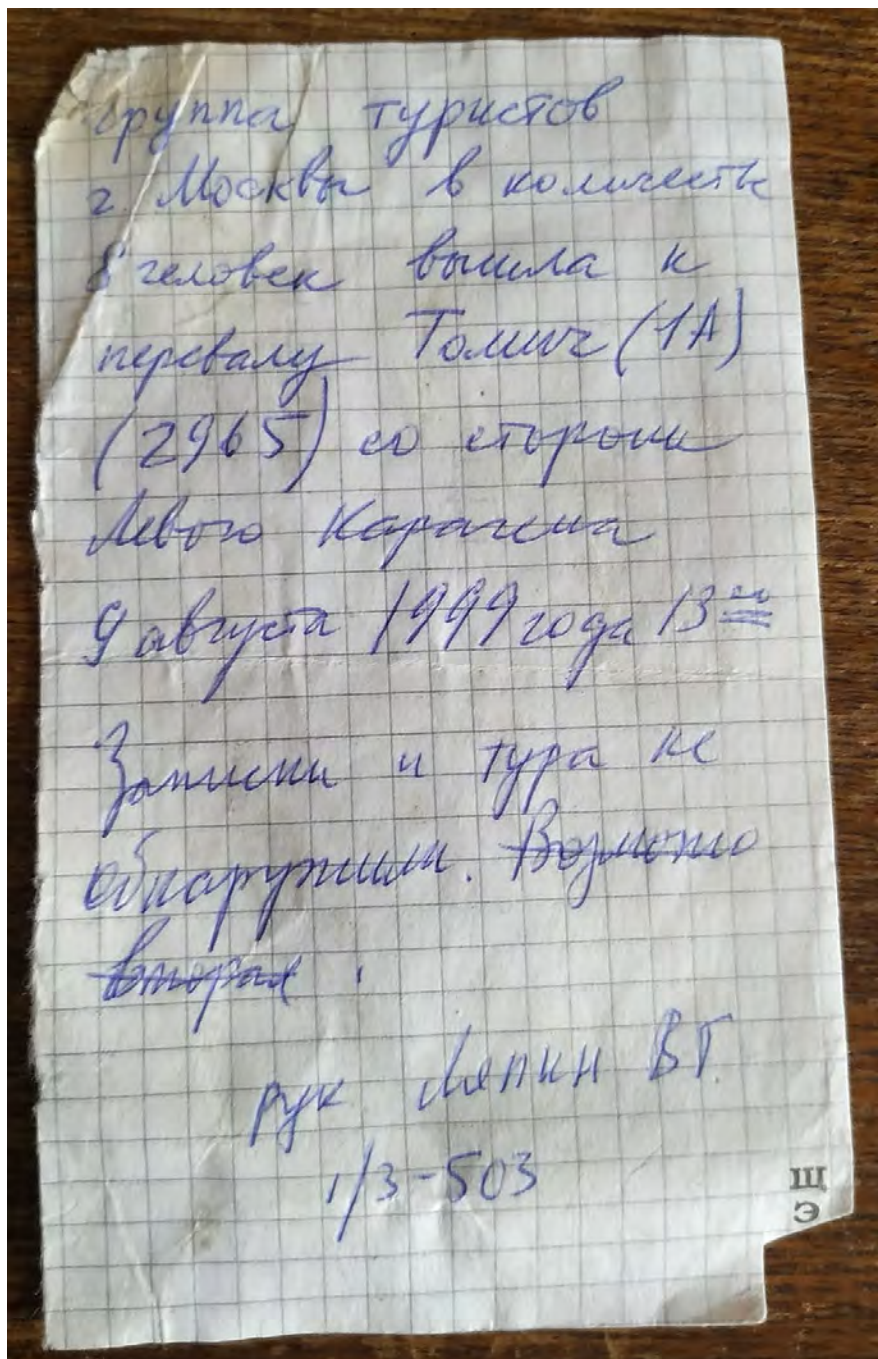 группа туристов
г. Москвы в количестве
8 человек вышла к
перевалу Томич (1А)
(2965) со стороны
Левого Карагема
9 августа 1999 года 13 00
Записки и тура не
обнаружили. Возможно
вторая .
рук Ляпин ВГ.
1/3-503
Щ
Э